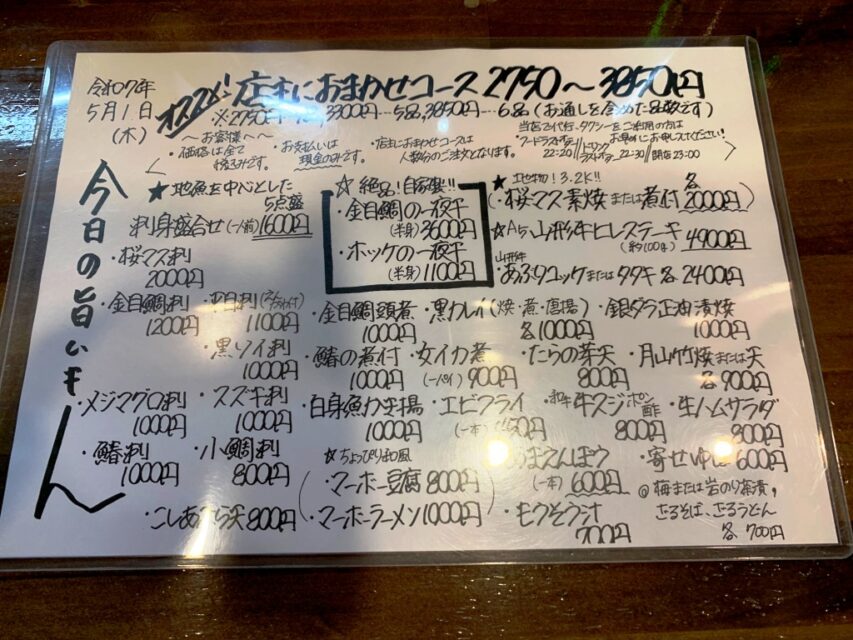 令和07年
5月1日
(木)
オススメ! 店主におまかせコース2750〜3850円
※2750円 3300円…5品,3850円…6品(お通しを含めた品数です)
〜お客様へ〜
・価格は全て税込みです。
・お支払いは現金のみです。
・店主におまかせコースは人数分のご注文となります。
当店で代行、タクシーをご利用の方は
お早めにお申し下さい!
フードラストオーダー22:20//ドリンクラストオーダー22:30//閉店23:00
今日の旨いもん
★地魚を中心とした
5点盛
刺身盛合せ(一人前)1600円
・桜マス刺
2000円
・金目鯛刺
1200円
・平目刺
1100円
・黒ソイ刺
1000円
・メジマグロ刺
1000円
・スズキ刺
1000円
・鰆刺
1000円
・小鯛刺
800円
・こしあぶら天800円
☆絶品!自家製!!
・金目鯛の一夜干
(半身)3600円
・ホッケの一夜干
(半身)1100円
★地物!3.2K!!
(・桜マス素焼または煮付 各2000円)
★A5山形牛ヒレステーキ
(約100g)4900円
山形牛
・あぶりユッケまたはタタキ各2400円
・金目鯛頭煮
1000円
・黒カレイ(焼・煮・唐揚)
各1000円
・銀ダラ正油漬焼
1000円
・鰆の煮付
1000円
・女イカ煮
(一パイ)900円
・たらの芽天
800円
・月山竹焼または天
各900円
・白身魚かき揚
1000円
・エビフライ
(一本)
・和牛牛スジポン酢
800円
・生ハムサラダ
900円
☆ちょっぴり和風
・マーボー豆腐800円
・マーボーラーメン1000円
(一本)600円
・モウソウ汁
700円
・寄せ 600円
◎梅または岩のり茶漬,
ざるそば、ざるうどん
各700円